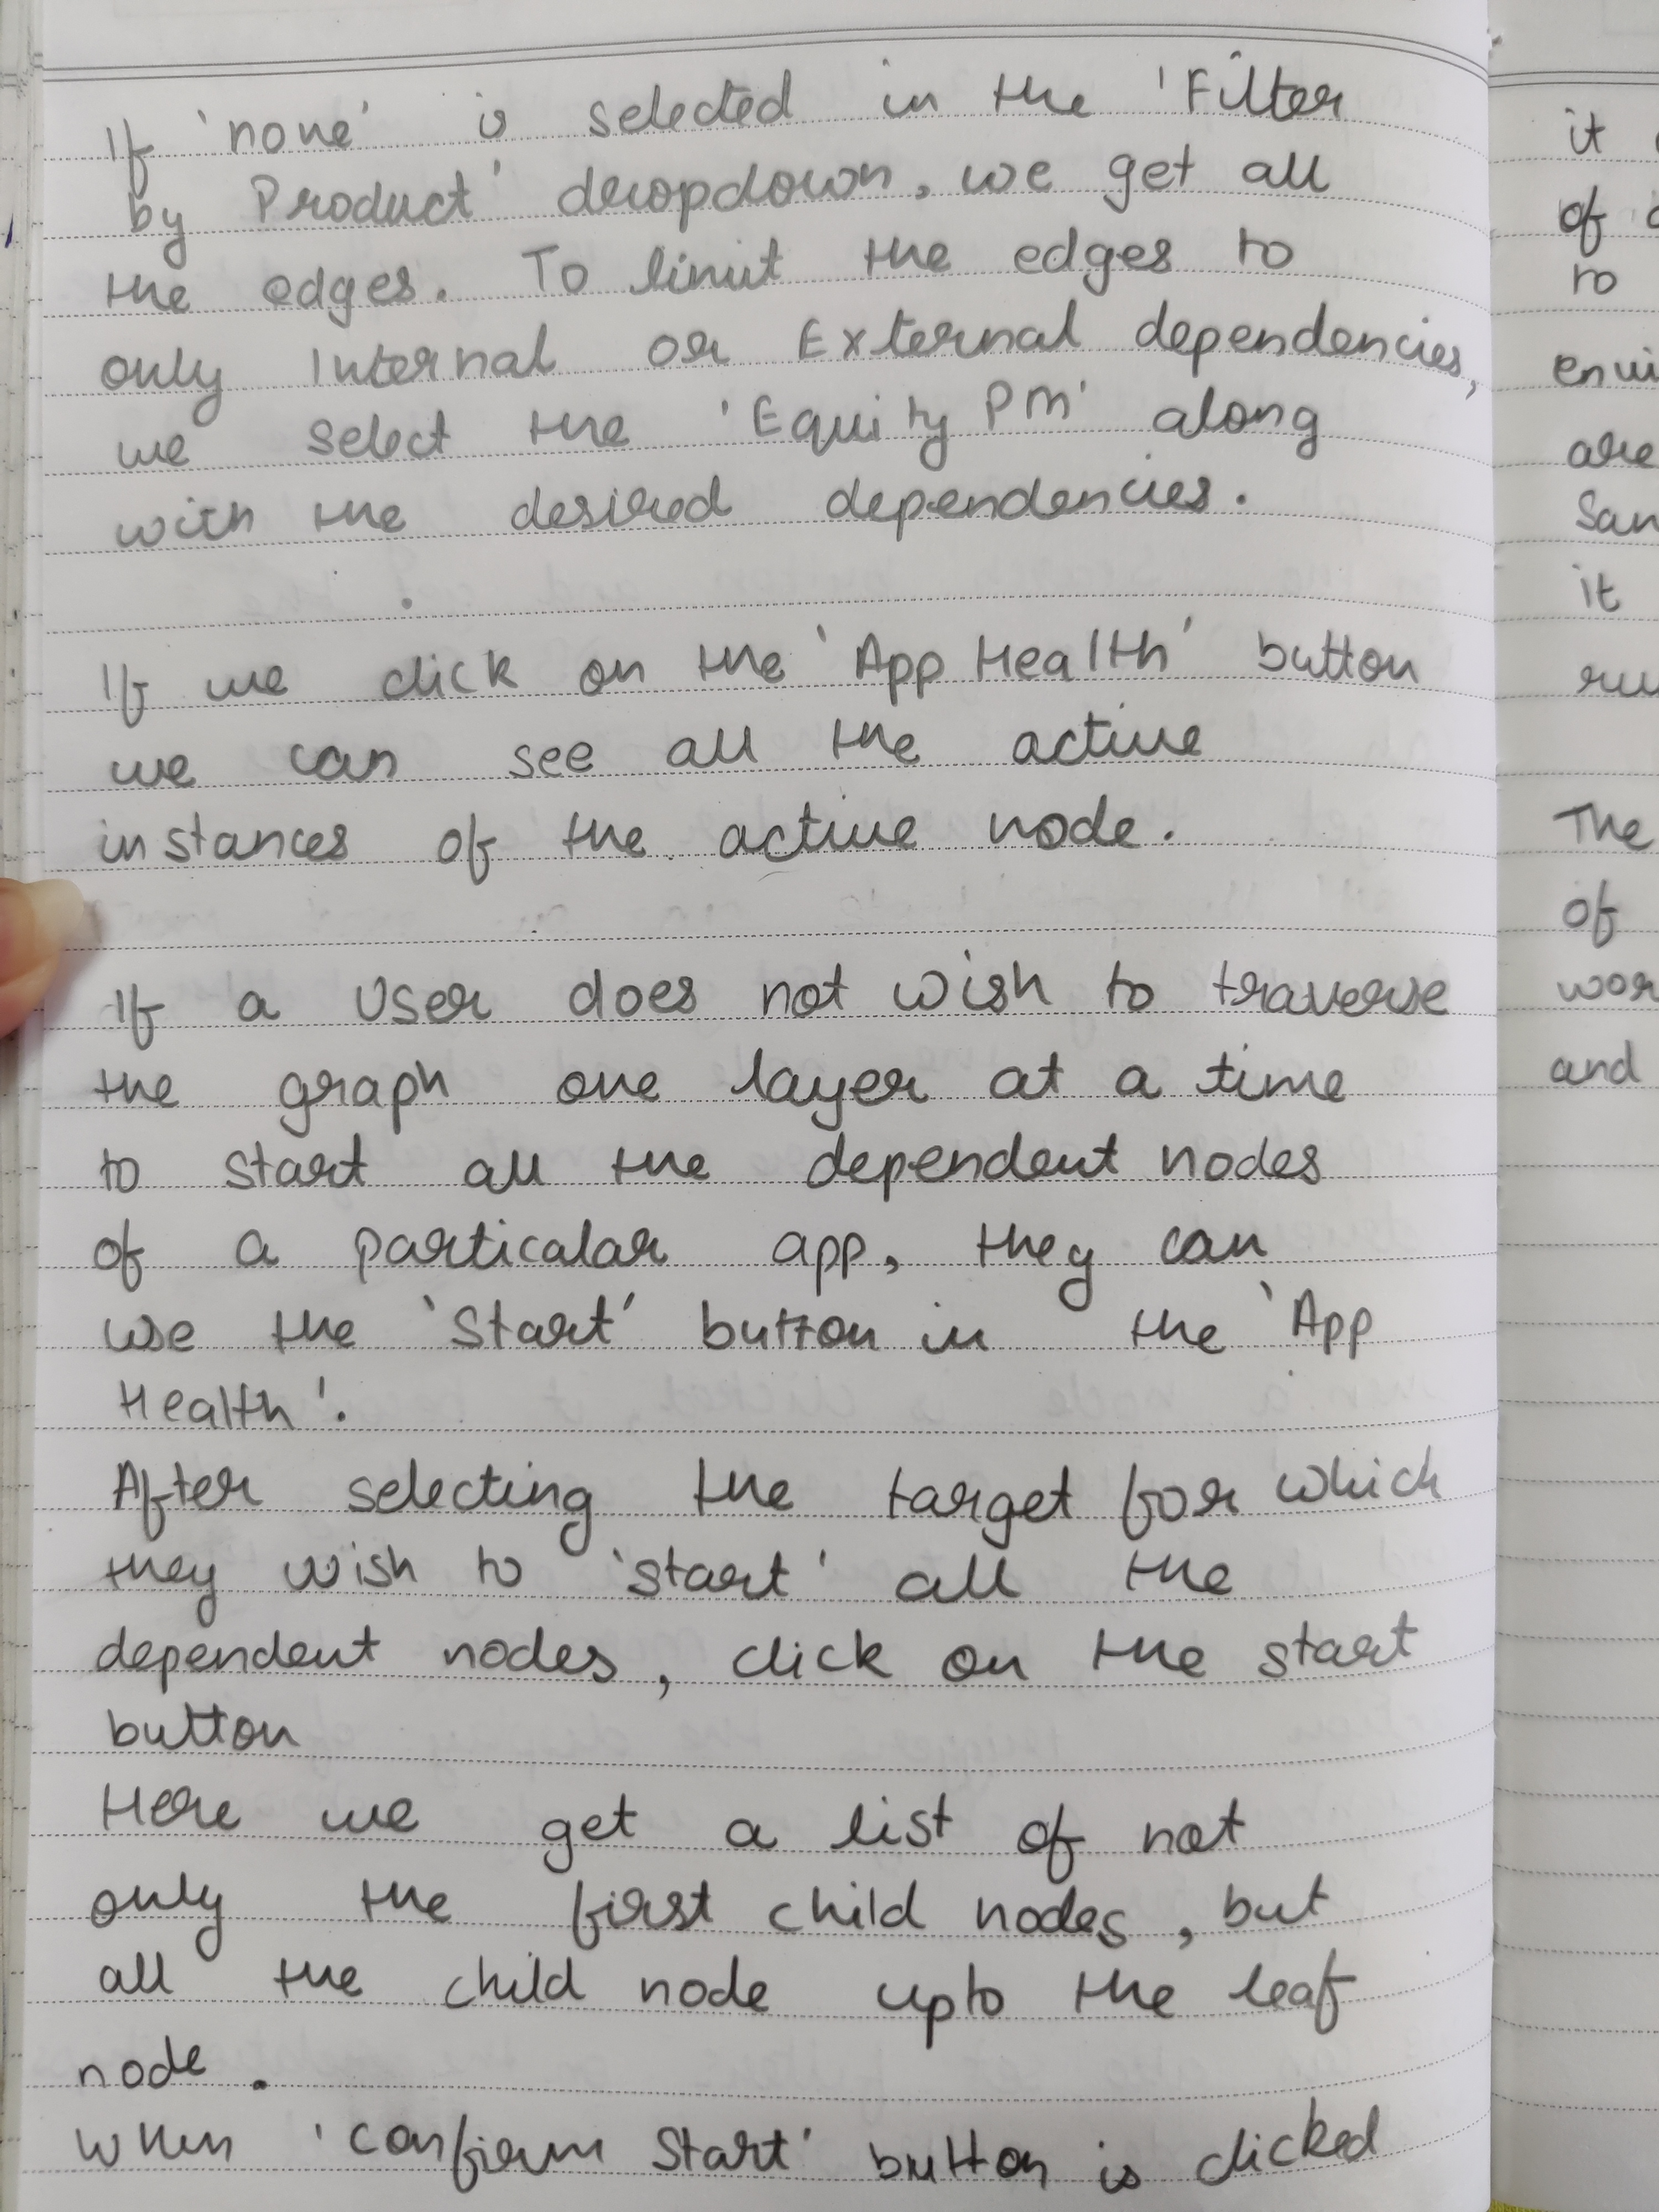 If 'none' is selected in the 'Filter
by Product' dropdown, we get all
the edges. To limit the edges to
only Internal or External dependencies,
we select the 'Equity PM' along
with the desired dependencies.
If we click on the 'App Health' button
we can see all the active
instances of the active node.
If a user does not wish to traverse
the graph one layer at a time
to start all the dependent nodes
of a particular app, they can
use the 'Start' button in the 'App
Health'.
After selecting the target for which
they wish to 'start' all the
dependent nodes, click on the start
button
Here we get a list of not
only the first child nodes, but
all the child node upto the leaf
node.
When 'Confirm Start' button is clicked
it
of
to
are
it
The
of
and